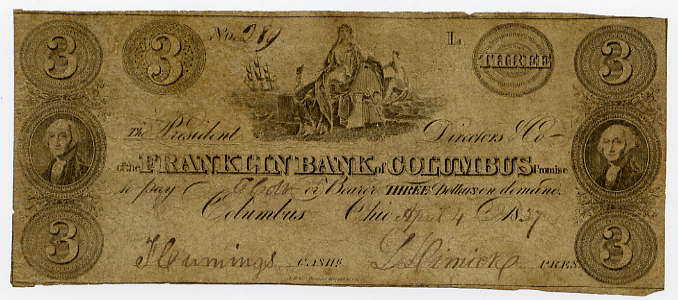 3 3 No. 289 L THREE 3
The President Directors & Co
of the FRANKLIN BANK of COLUMBUS Promise
to pay or Bearer THREE Dollars on demand.
Columbus Ohio April 4 1837
3 CASHR PRES 3